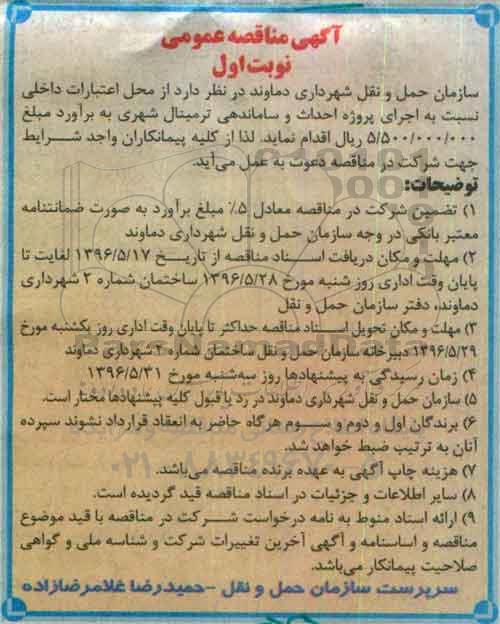 آگهی مناقصه عمومی
نوبت اول
سازمان حمل و نقل شهرداری دماوند در نظر دارد از محل اعتبارات داخلی
نسبت به اجرای پروژه احداث و ساماندهی ترمینال شهری به برآورد مبلغ
۵/۵۰۰/۰۰۰/۰۰۰ ریال اقدام نماید. لذا از کلیه پیمانکاران واجد شرایط
جهت شرکت در مناقصه دعوت به عمل می‌آید.
توضیحات:
۱) تضمین شرکت در مناقصه معادل ۵٪ مبلغ برآورد به صورت ضمانتنامه
معتبر بانکی در وجه سازمان حمل و نقل شهرداری دماوند
۲) مهلت و مکان دریافت اسناد مناقصه از تاریخ ۱۳۹۶/۵/۱۷ لغایت تا
پایان وقت اداری روز شنبه مورخ ۱۳۹۶/۵/۲۸ ساختمان شماره ۲ شهرداری
دماوند، دفتر سازمان حمل و نقل
۳) مهلت و مکان تحویل اسناد مناقصه حداکثر تا پایان وقت اداری روز یکشنبه مورخ
۱۳۹۶/۵/۲۹ دبیرخانه سازمان حمل و نقل ساختمان شماره ۲ شهرداری دماوند
۴) زمان رسیدگی به پیشنهادها روز سه‌شنبه مورخ ۱۳۹۶/۵/۳۱
۵) سازمان حمل و نقل شهرداری دماوند در رد یا قبول کلیه پیشنهادها مختار است.
۶) برندگان اول و دوم و سوم هرگاه حاضر به انعقاد قرارداد نشوند سپرده
آنان به ترتیب ضبط خواهد شد.
۷) هزینه چاپ آگهی به عهده برنده مناقصه می‌باشد.
۸) سایر اطلاعات و جزئیات در اسناد مناقصه قید گردیده است.
۹) ارائه اسناد منوط به نامه درخواست شرکت در مناقصه با قید موضوع
مناقصه و اساسنامه و آگهی آخرین تغییرات شرکت و شناسه ملی و گواهی
صلاحیت پیمانکار می‌باشد.
سرپرست سازمان حمل و نقل -حمیدرضا غلامرضازاده